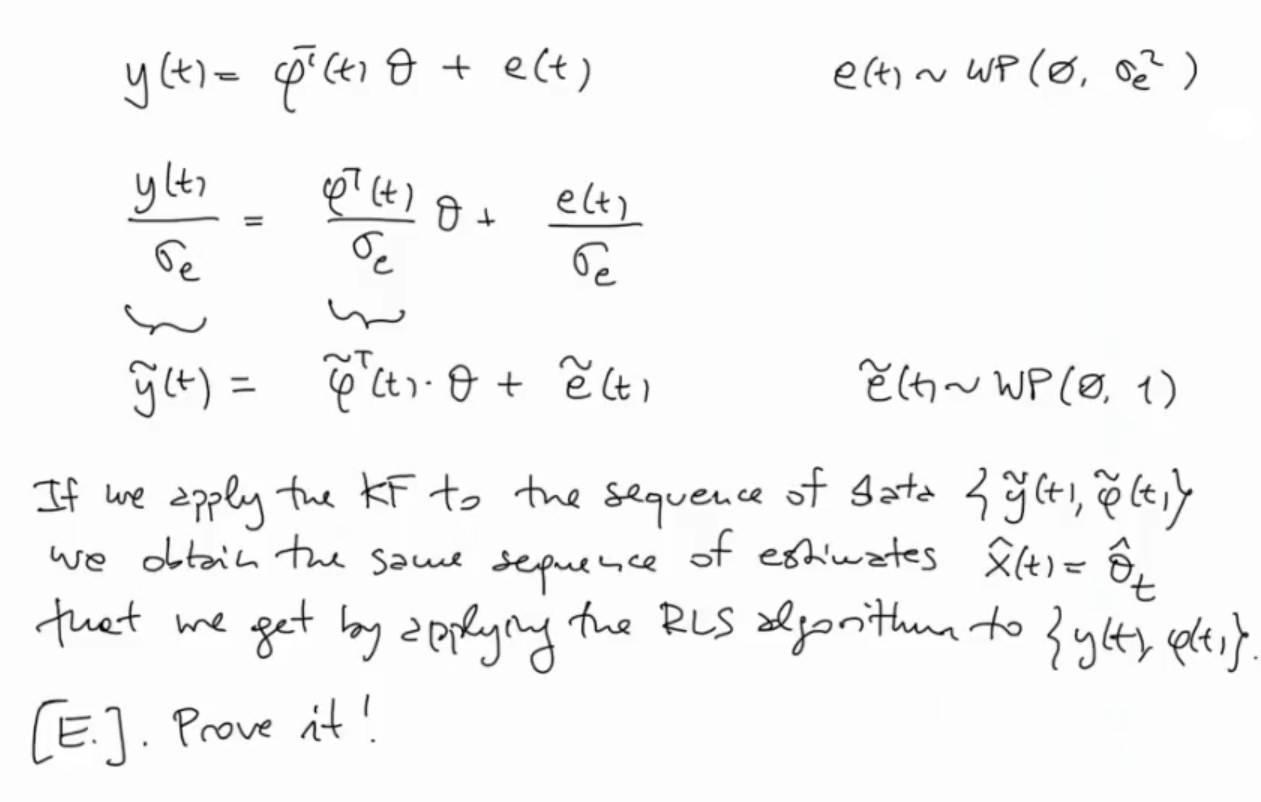 y(t) = φᵀ(t) θ + e(t) e(t) ~ WP(∅, σₑ²)
y(t)/σₑ = φᵀ(t)/σₑ θ + e(t)/σₑ
ỹ(t) = φ̃ᵀ(t)·θ + ẽ(t) ẽ(t) ~ WP(∅, 1)
If we apply the KF to the sequence of data {ỹ(t), φ̃(t)}
we obtain the same sequence of estimates x̂(t) = θ̂ₜ
that we get by applying the RLS algorithm to {y(t), φ(t)}.
[E.]. Prove it!